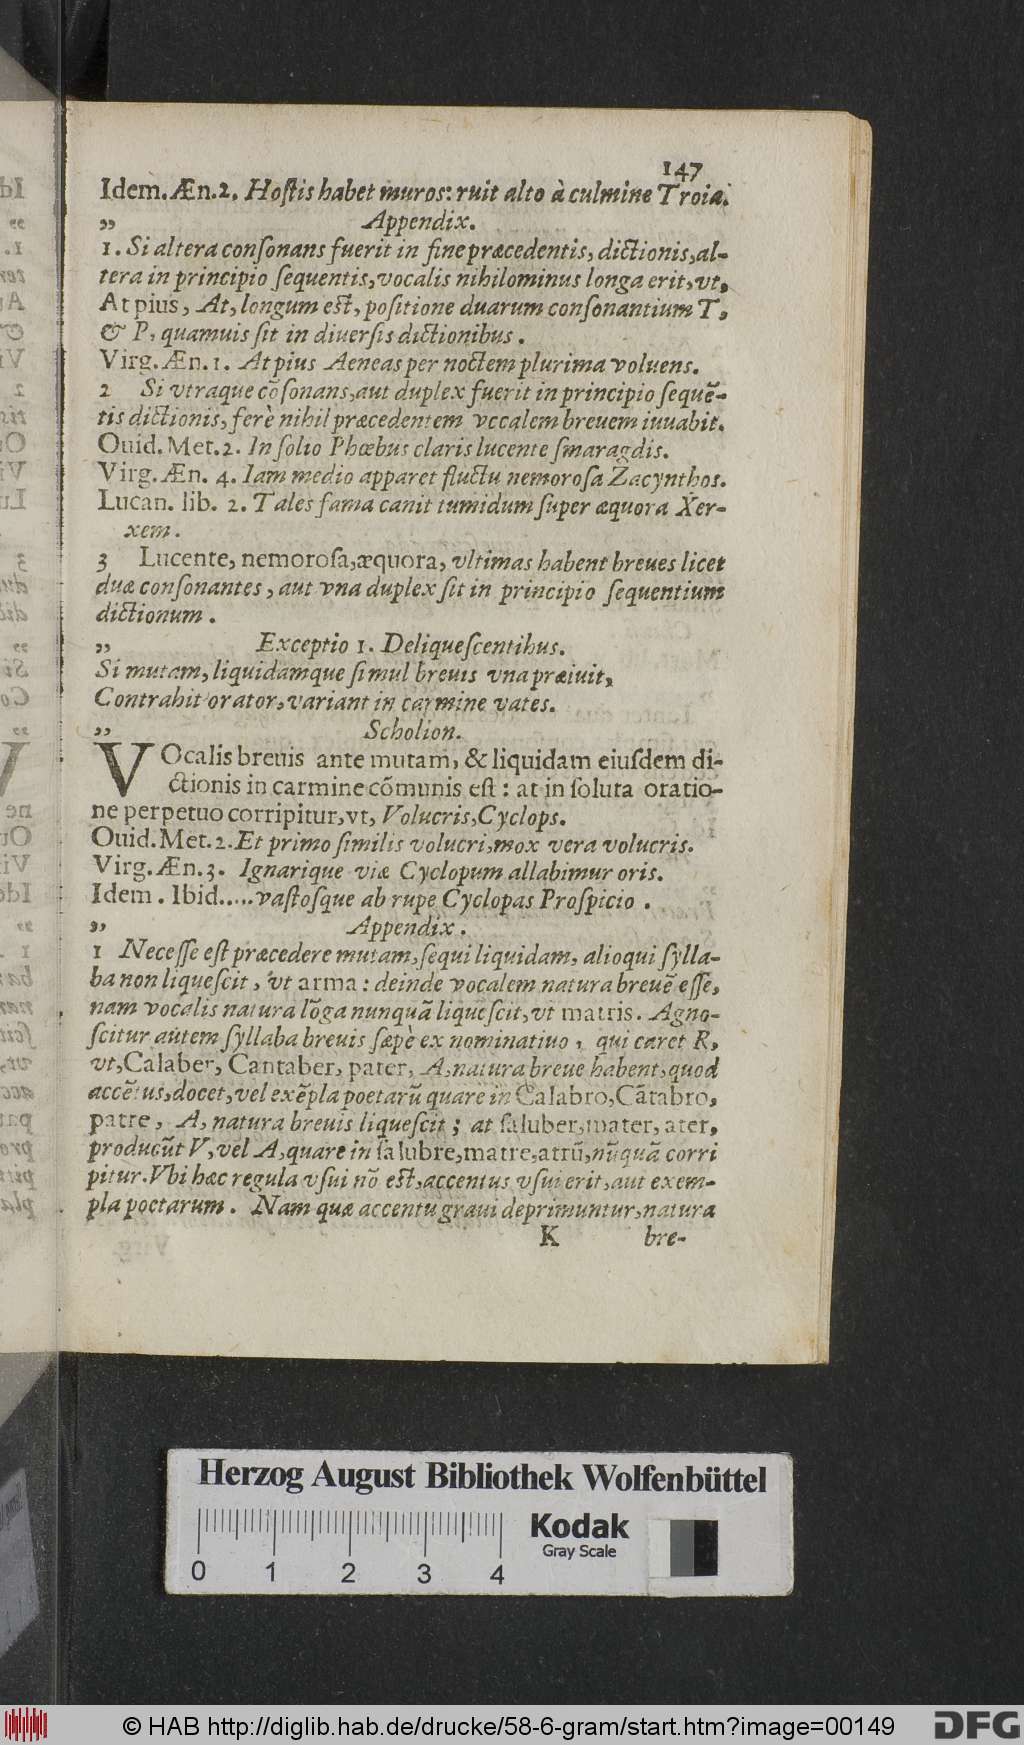 147
Idem. Æn. 2. Hoſtis habet muros: ruit alto à culmine Troia.
„ Appendix.
1. Si altera conſonans fuerit in fine præcedentis, dictionis, al-
tera in principio ſequentis, vocalis nihilominus longa erit, vt,
At pius, At, longum eſt, poſitione duarum conſonantium T,
& P, quamuis ſit in diuerſis dictionibus.
Virg. Æn. 1. At pius Aeneas per noctem plurima voluens.
2 Si vtraque cõſonans, aut duplex fuerit in principio ſequẽ-
tis dictionis, ferè nihil præcedentem vocalem breuem iuuabit.
Ouid. Met. 2. In ſolio Phœbus claris lucente ſmaragdis.
Virg. Æn. 4. Iam medio apparet fluctu nemoroſa Zacynthos.
Lucan. lib. 2. Tales fama canit tumidum ſuper æquora Xer-
xem.
3 Lucente, nemoroſa, æquora, vltimas habent breues licet
duæ conſonantes, aut vna duplex ſit in principio ſequentium
dictionum.
„ Exceptio 1. Deliqueſcentibus.
Si mutam, liquidamque ſimul breuis vna præiuit,
Contrahit orator, variant in carmine vates.
„ Scholion.
VOcalis breuis ante mutam, & liquidam eiuſdem di-
ctionis in carmine cõmunis eſt: at in ſoluta oratio-
ne perpetuo corripitur, vt, Volucris, Cyclops.
Ouid. Met. 2. Et primo ſimilis volucri, mox vera volucris.
Virg. Æn. 3. Ignarique viæ Cyclopum allabimur oris.
Idem. Ibid..... vaſtoſque ab rupe Cyclopas Proſpicio.
„ Appendix.
1 Neceſſe eſt præcedere mutam, ſequi liquidam, alioqui ſylla-
ba non liqueſcit, vt arma: deinde vocalem natura breuẽ eſſe,
nam vocalis natura lõga nunquã liqueſcit, vt matris. Agno-
ſcitur autem ſyllaba breuis ſæpè ex nominatiuo, qui caret R,
vt, Calaber, Cantaber, pater, A, natura breue habent, quod
accẽtus, docet, vel exẽpla poetarũ quare in Calabro, Cãtabro,
patre, A, natura breuis liqueſcit; at ſaluber, mater, ater,
producũt V, vel A, quare in ſalubre, matre, atrũ, nũquã corri
pitur. Vbi hæc regula vſui nõ eſt, accentus vſui erit, aut exem-
pla poetarum. Nam quæ accentu graui deprimuntur, natura
K bre-
Herzog August Bibliothek Wolfenbüttel
Kodak
Gray Scale
0 1 2 3 4
© HAB http://diglib.hab.de/drucke/58-6-gram/start.htm?image=00149
DFG